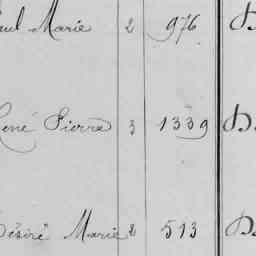 Paul Marie 2 976 D
René Pierre 3 1339 D
Désiré Marie 2 513 D